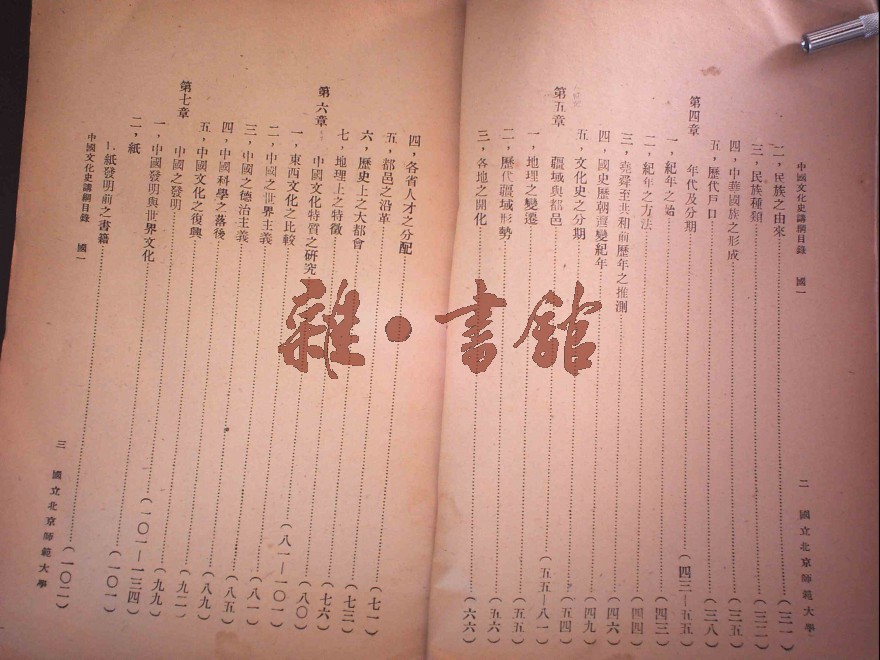 中國文化史講綱目錄 國一 二 國立北京師範大學
二，民族之由來……(三一)
三，民族種類……(三二)
四，中華國族之形成……(三五)
五，歷代戶口……(三八)
第四章 年代及分期……(四三—五五)
一，紀年之始……(四三)
二，紀年之方法……(四四)
三，堯舜至共和前歷年之推測……(四六)
四，國史歷朝遞變紀年……(四九)
五，文化史之分期……(五四)
第五章 疆域與都邑……(五五—八一)
一，地理之變遷……(五五)
二，歷代疆域形勢……(五六)
三，各地之開化……(六六)
四，各省人才之分配……(七一)
五，都邑之沿革……(七三)
六，歷史上之大都會……(七六)
七，地理上之特徵……(八〇)
第六章 中國文化特質之研究……(八一—一〇一)
一，東西文化之比較……(八一)
二，中國之世界主義……(八五)
三，中國之德治主義……(八九)
四，中國科學之落後……(九二)
五，中國文化之復興……(九九)
第七章 中國之發明……(一〇一—一三四)
一，中國發明與世界文化……(一〇一)
二，紙
1.紙發明前之書籍……(一〇二)
中國文化史講綱目錄 國一 三 國立北京師範大學
雜·書館